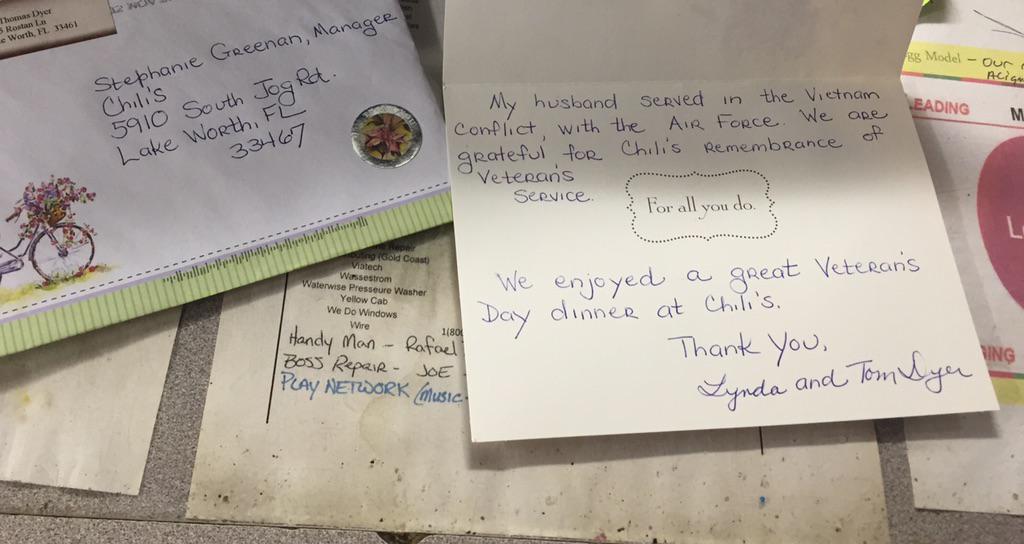 Thomas Dyer
Rostan Ln
Worth, FL 33461
NOV
Stephanie Greenan, Manager
Chili's
5910 South Jog Rd.
Lake Worth, FL
33467
My husband served in the Vietnam
Conflict, with the Air Force. We are
grateful for Chili's remembrance of
Veterans
Service.
For all you do.
We enjoyed a great Veteran's
Day dinner at Chili's.
Thank You,
Lynda and Tom Dyer
Repair
(Gold Coast)
Viatech
Wassestrom
Waterwise Presseure Washer
Yellow Cab
We Do Windows
Wire
1(80
Handy Man - Rafael
Boss Repair - Joe -
Play Network (music
gg Model - our
Align
EADING
M
L
ING